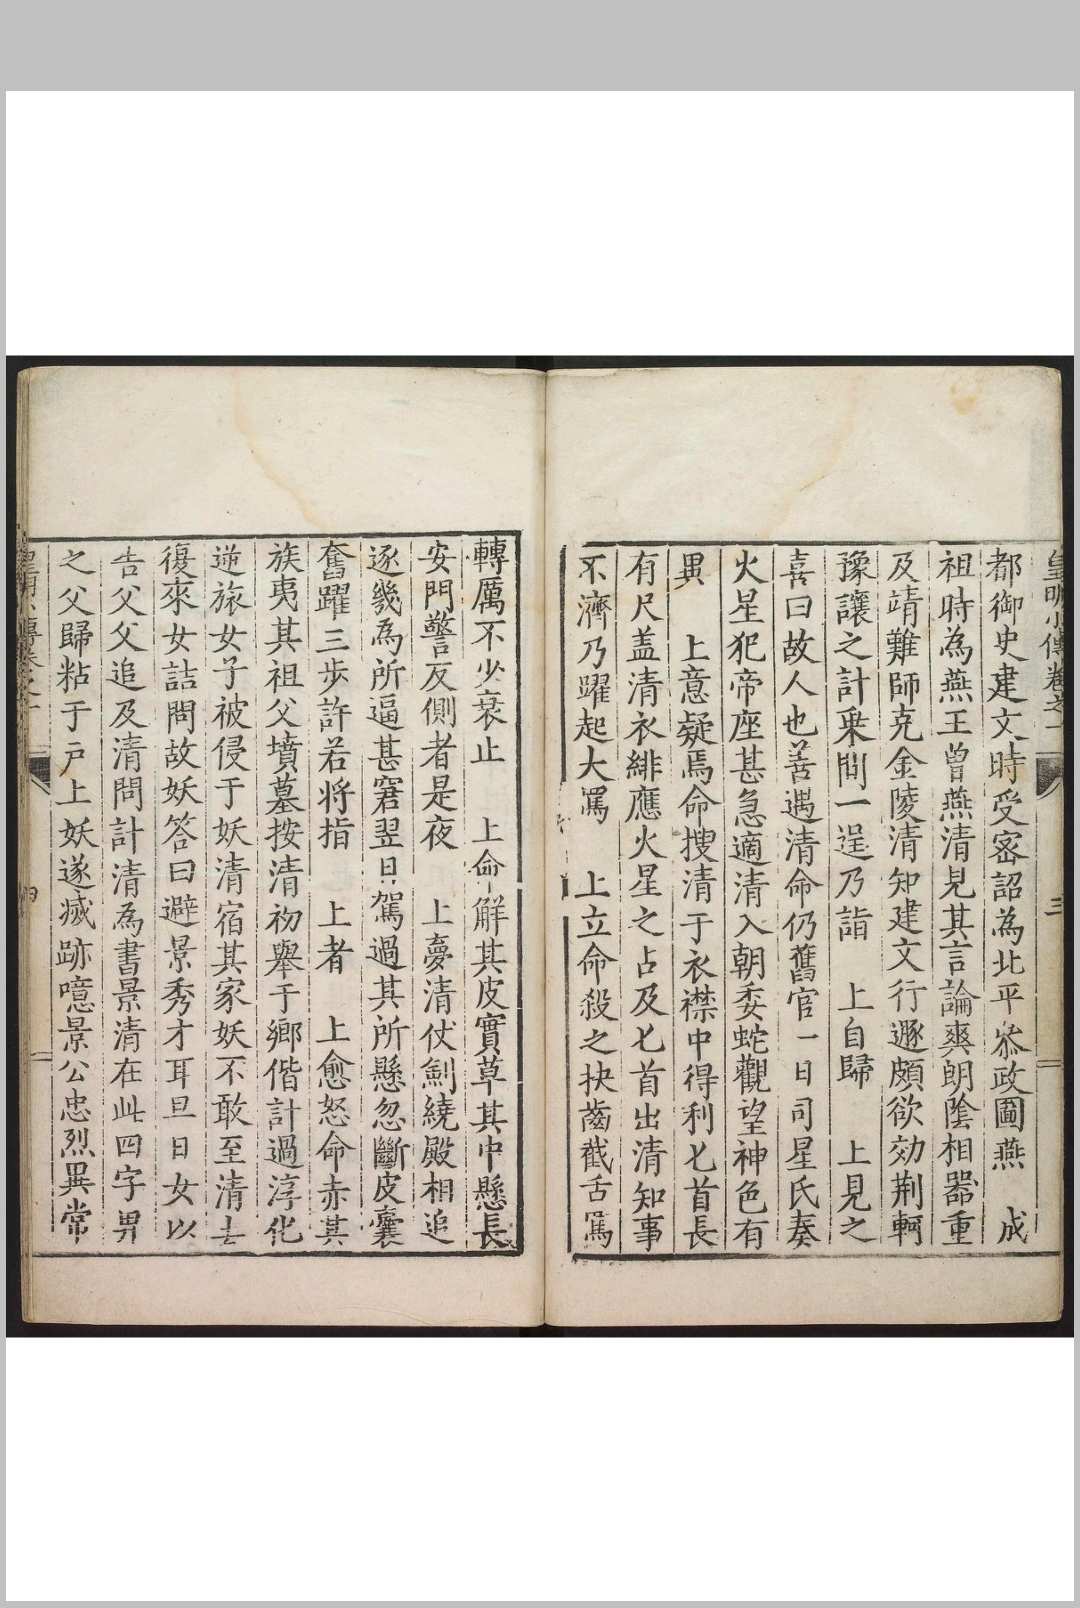 皇明小傳卷之一 三
都御史建文時受密詔為北平叅政圖燕 成
祖時為燕王曾燕清見其言論爽朗陰相器重
及靖難師克金陵清知建文行遯頗欲効荆軻
豫讓之計乗間一逞乃詣 上自歸 上見之
喜曰故人也善遇清命仍舊官一日司星氏奏
火星犯帝座甚急適清入朝委蛇觀望神色有
異 上意疑焉命搜清于衣襟中得利匕首長
有尺盖清衣緋應火星之占及匕首出清知事
不濟乃躍起大罵 上立命殺之抉齒截舌罵
轉厲不少衰止 上命解其皮實草其中懸長
安門警反側者是夜 上夢清仗劍繞殿相追
逐幾為所逼甚窘翌日駕過其所懸忽斷皮囊
奮躍三步許若将指 上者 上愈怒命赤其
族夷其祖父墳墓按清初舉于鄉偕計過淳化
逆旅女子被侵于妖清宿其家妖不敢至清去
復來女詰問故妖答曰避景秀才耳旦日女以
告父父追及清問計清為書景清在此四字畀
之父歸粘于戶上妖遂滅跡噫景公忠烈異常
皇明小傳卷之一 四